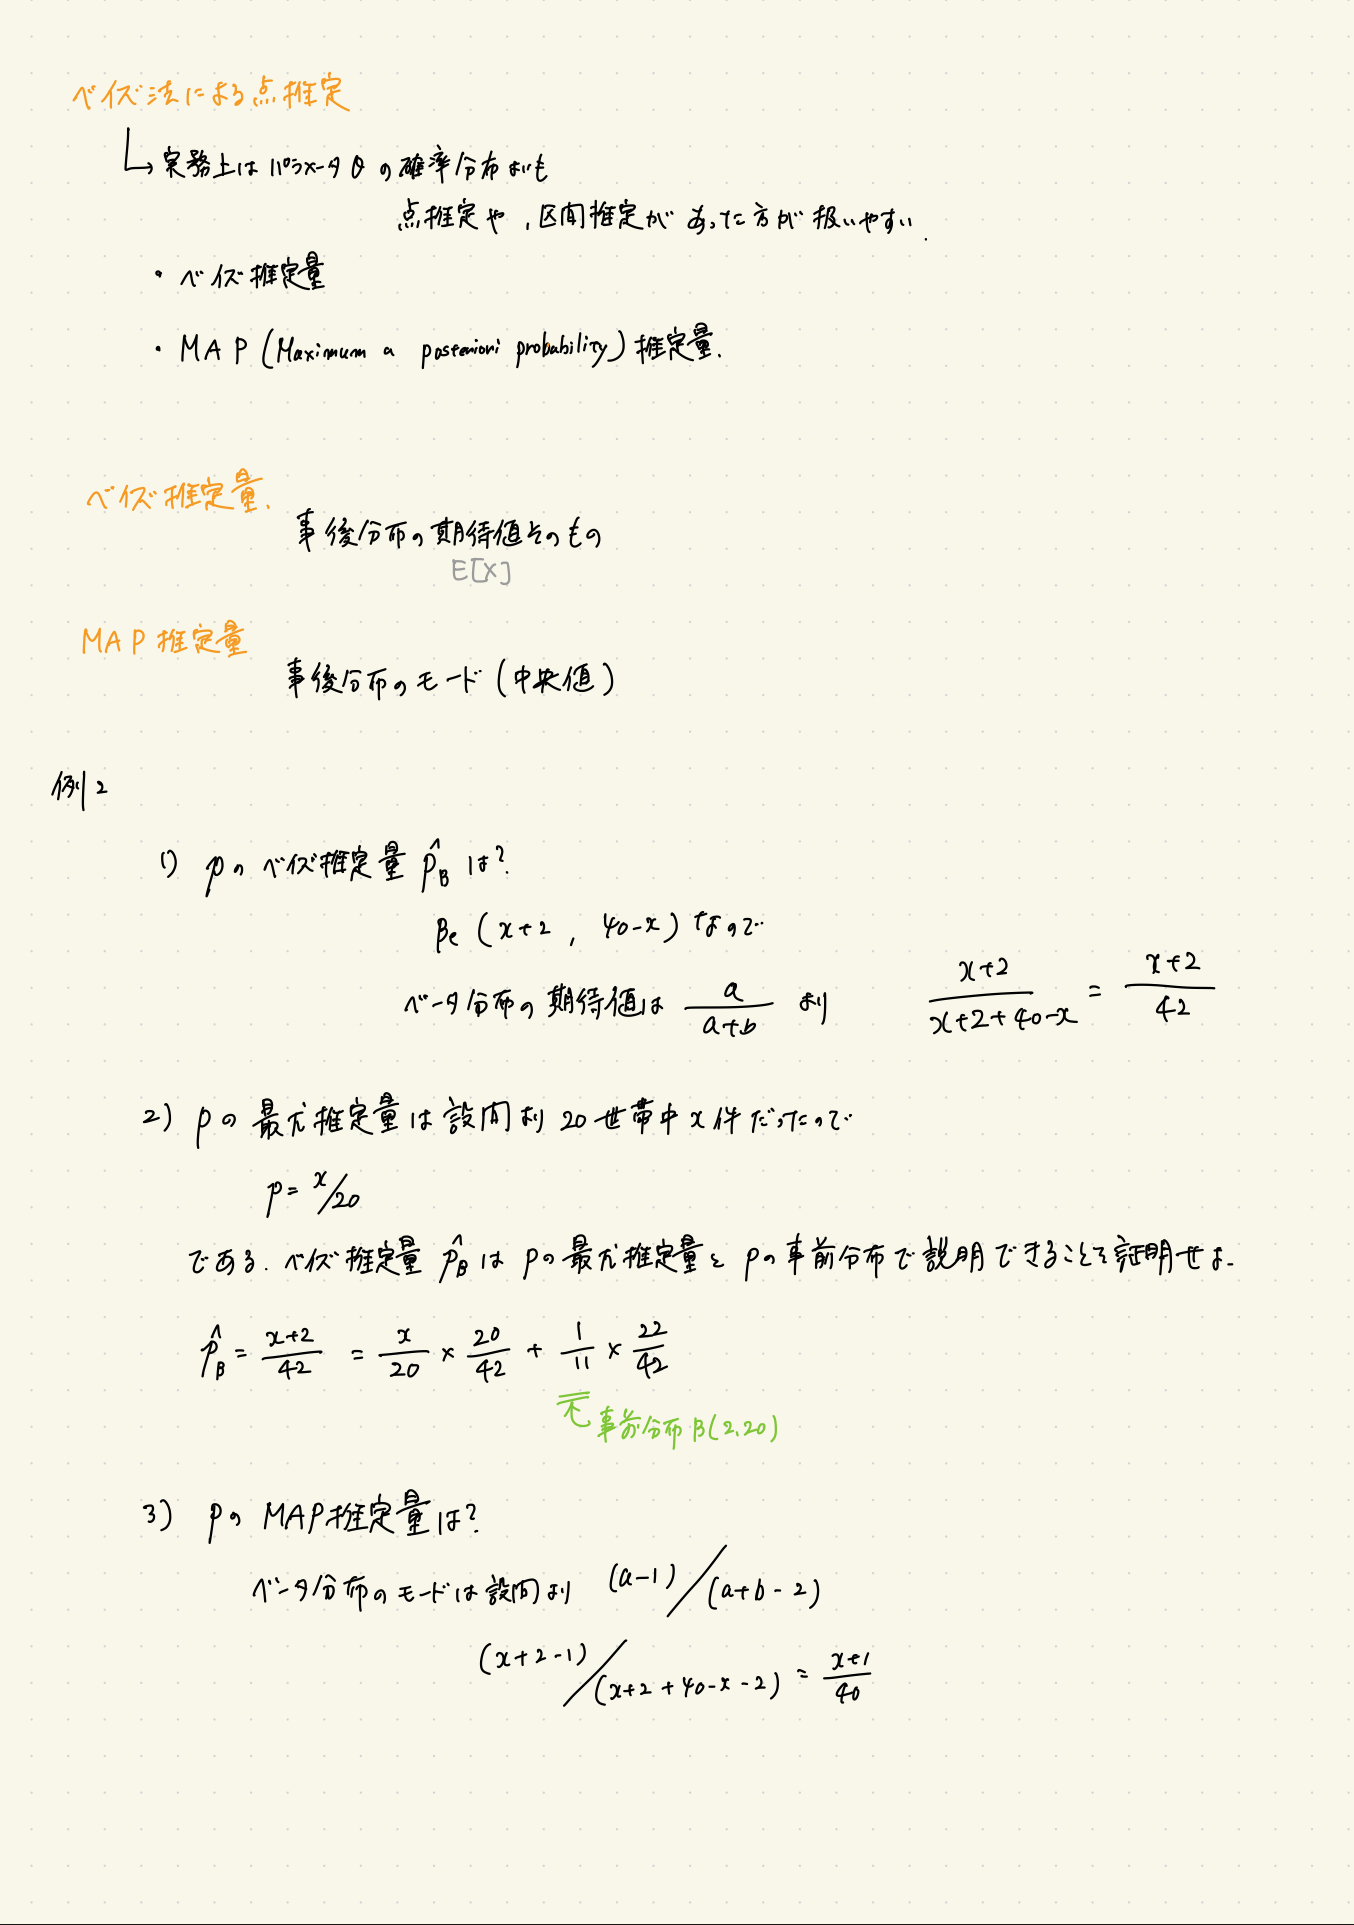 ベイズ法による点推定
↳実務上はパラメータθの確率分布よりも
点推定や,区間推定があった方が扱いやすい.
・ベイズ推定量
・MAP (Maximum a posteriori probability) 推定量.
ベイズ推定量.
事後分布の期待値そのもの
E[X]
MAP推定量
事後分布のモード(中央値)
例2
1) pのベイズ推定量 p̂_B は?
Be (x+2, 40-x) なので
ベータ分布の期待値は a/(a+b) より (x+2)/(x+2+40-x) = (x+2)/42
2) pの最尤推定量は設問より20世帯中x件だったので
p = x/20
である. ベイズ推定量 p̂_B は pの最尤推定量と pの事前分布で説明できることを証明せよ.
p̂_B = (x+2)/42 = x/20 × 20/42 + 1/11 × 22/42
事前分布 β(2.20)
3) pの MAP推定量は?
ベータ分布のモードは設問より (a-1)/(a+b-2)
(x+2-1)/(x+2+40-x-2) = (x+1)/40